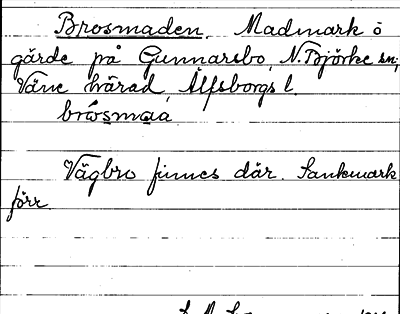 Brosmaden. Madmark ö
gärde på Gunnarsbo, N. Björke sn,
Väne härad, Älfsborgs l.
brósmaa
Vägbro finnes där. Sankmark
förr.